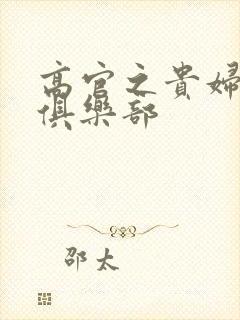 高官之貴婦
俱樂部
邵太